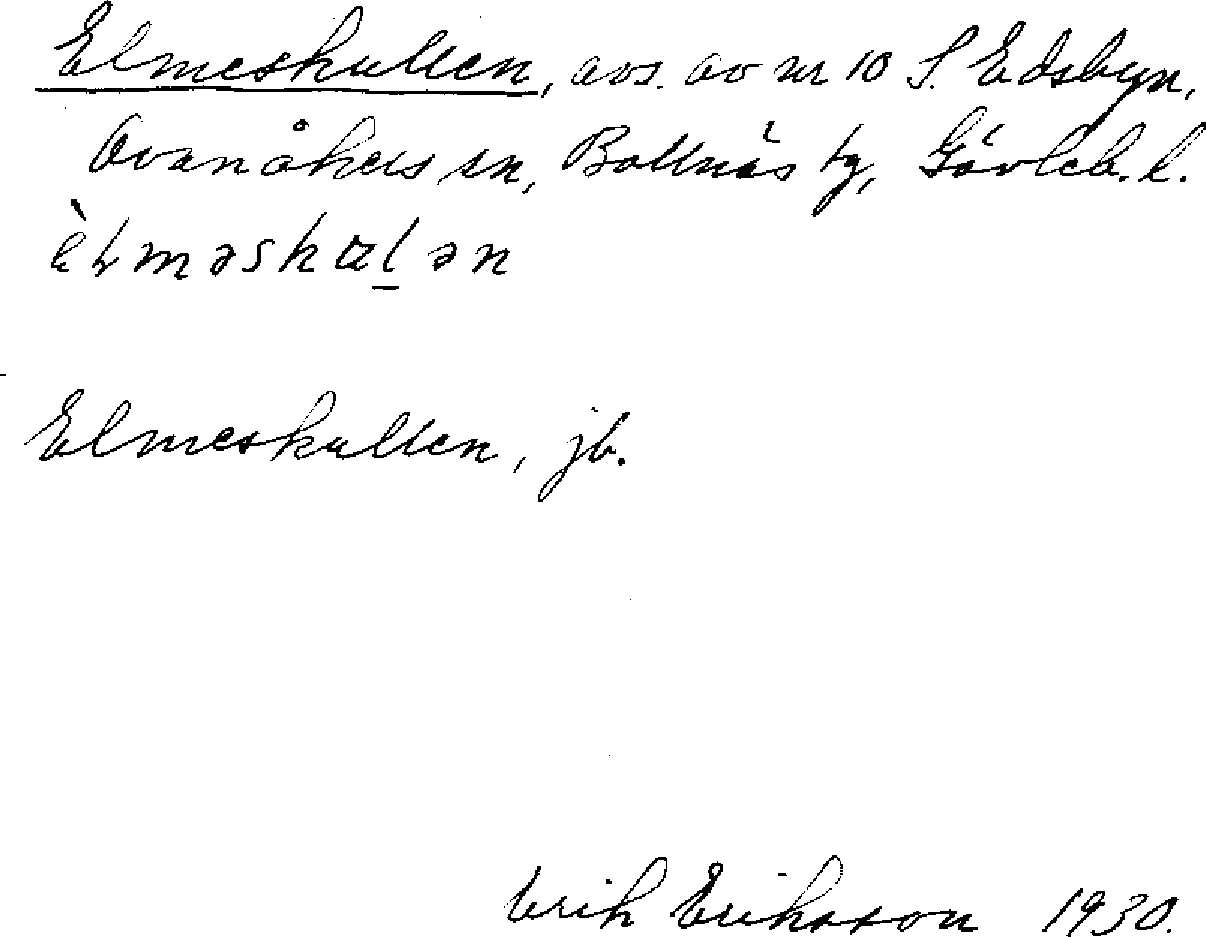 Elmeskullen, avs. av nr 10 S. Edsbyn,
Ovanåkers sn, Bollnäs tg, Gävleb. l.
Elmeskullen, jb.
Erik Eriksson 1930.